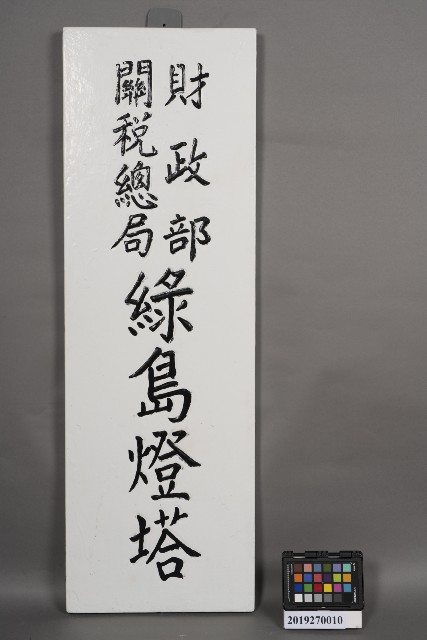 財政部
關稅總局
綠島燈塔
2019270010